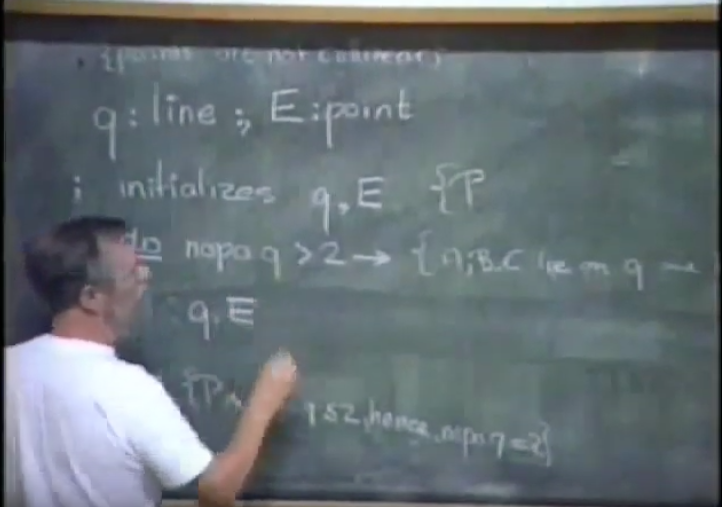 {points are not collinear}
q: line ;, E: point
; initializes q, E {P
do nopo q > 2 → { A, B, C lie on q
: q, E
{P q ≤ 2, hence, nopo q = 2}